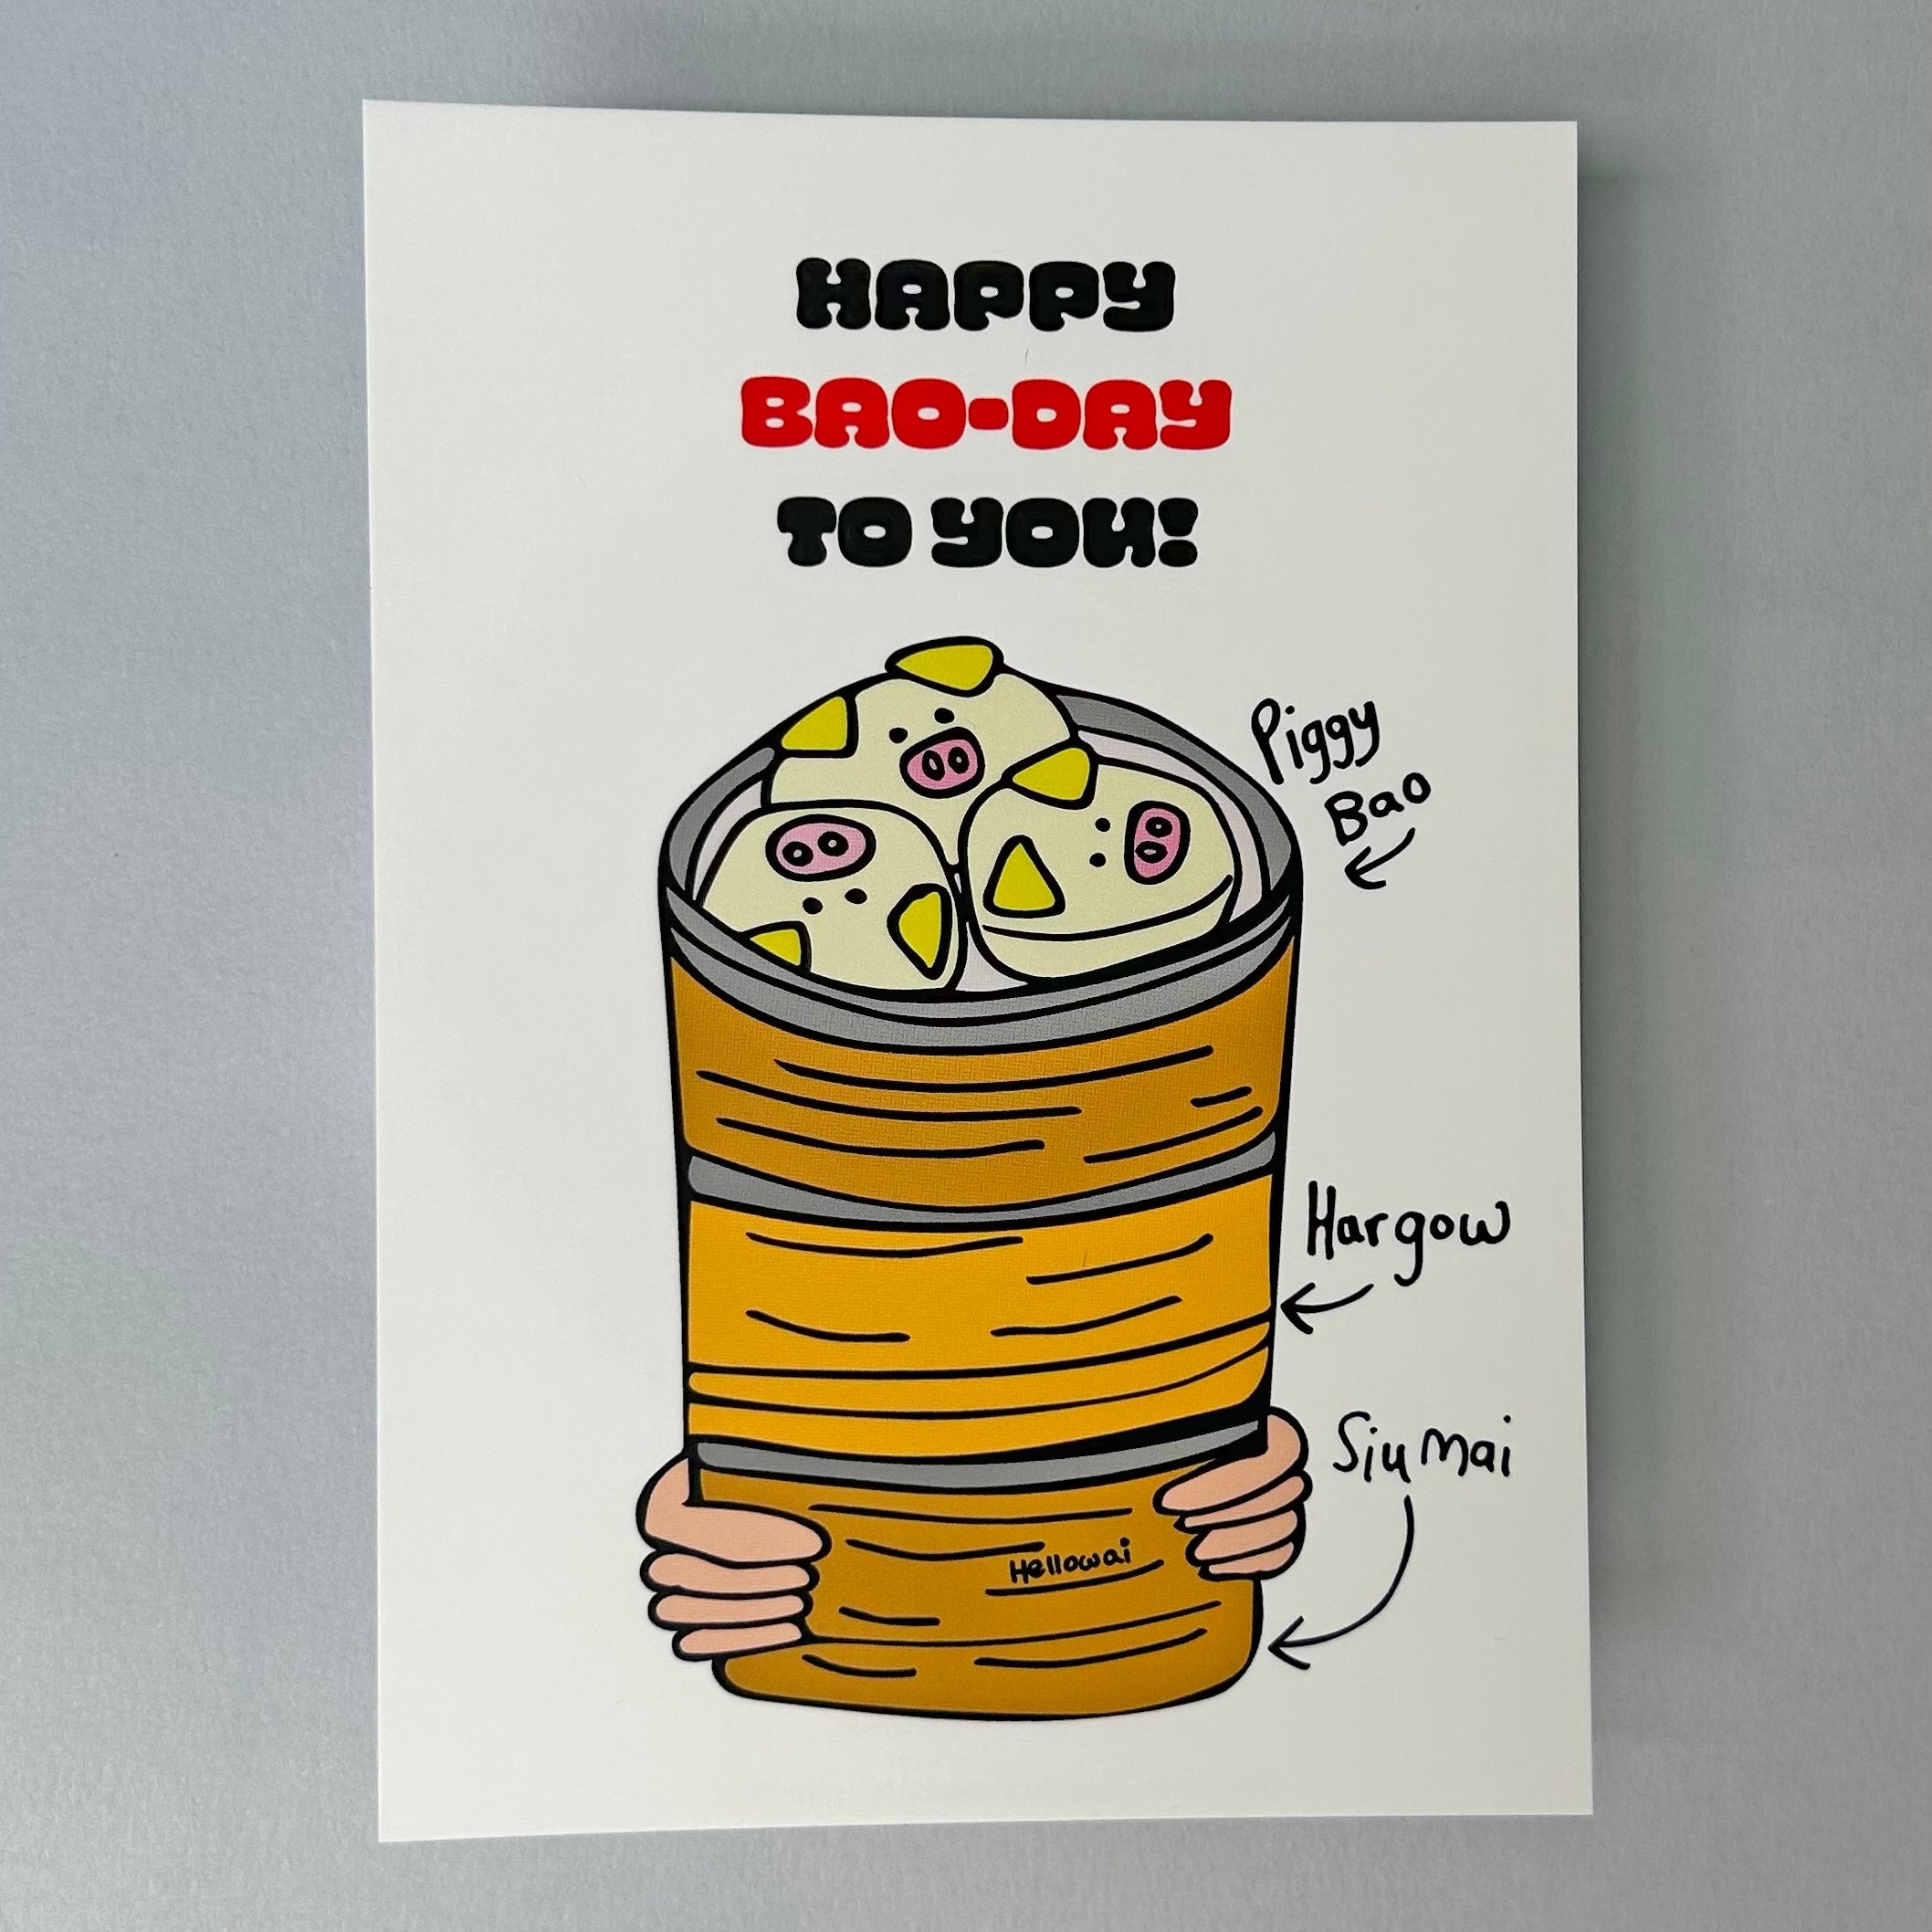 HAPPY
BAO-DAY
TO YOU!
Piggy
Bao
Hargow
Siu Mai
Hellowai